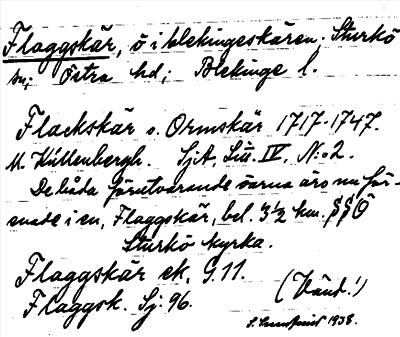 Flaggskär, ö i blekingeskären; Sturkö
sn; Östra hd; Blekinge l.
Flackskär o. Ormskär 1717-1747.
M. Källenbergh. SjA, Litt. IV, N:o 2.
De båda förutvarande öarna äro nu för-
enade i en, Flaggskär, bel. 3½ km. SSÖ
Sturkö kyrka.
Flaggskär ek. G. 11.
Flaggsk. Sj. 96.
(Vänd!)
1938.